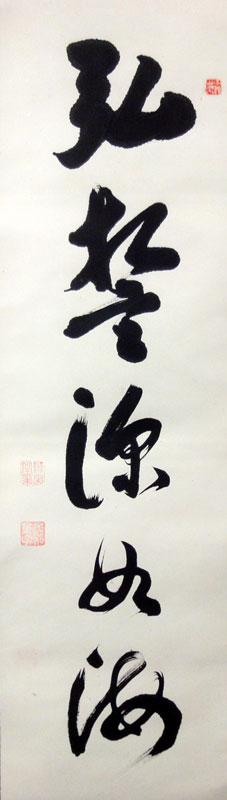 弘誓深如海